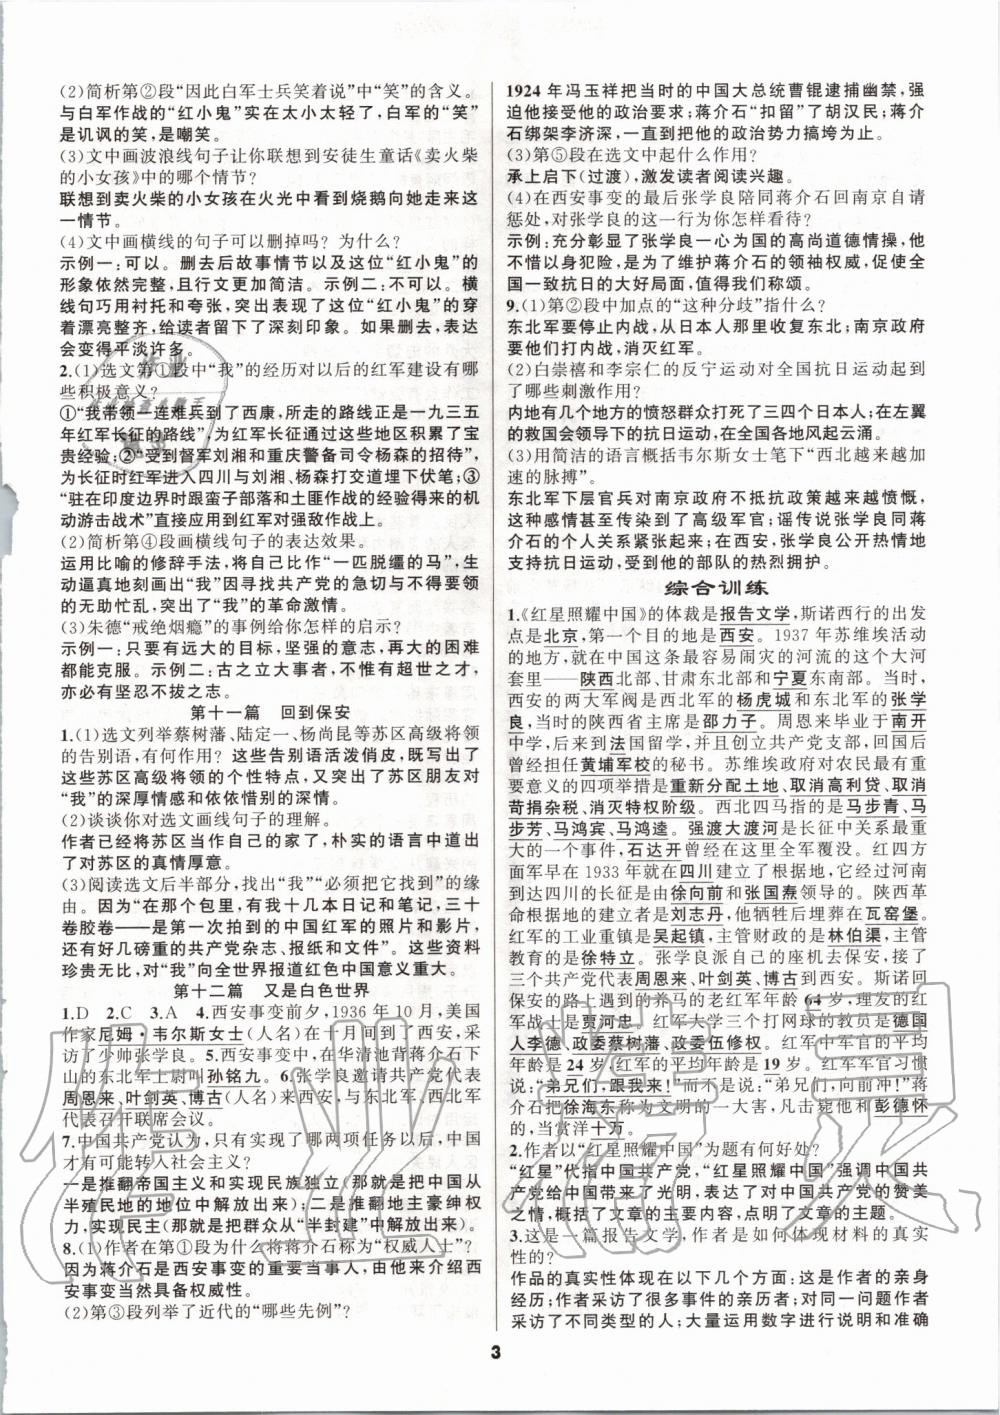 (2)简析第②段“因此白军士兵笑着说”中“笑”的含义。
与白军作战的“红小鬼”实在太小太轻了，白军的“笑”
是讥讽的笑，是嘲笑。
(3)文中画波浪线句子让你联想到安徒生童话《卖火柴
的小女孩》中的哪个情节？
联想到卖火柴的小女孩在火光中看到烧鹅向她走来这
一情节。
(4)文中画横线的句子可以删掉吗？为什么？
示例一：可以。删去后故事情节以及这位“红小鬼”的
形象依然完整，且行文更加简洁。示例二：不可以。横
线句巧用衬托和夸张，突出表现了这位“红小鬼”的穿
着漂亮整齐，给读者留下了深刻印象。如果删去，表达
会变得平淡许多。
2.(1)选文第①段中“我”的经历对以后的红军建设有哪
些积极意义？
①“我带领一连难兵到了西康，所走的路线正是一九三五
年红军长征的路线”，为红军长征经过这些地区积累了宝
贵经验；②“受到督军刘湘和重庆警备司令杨森的招待”，
为长征时红军进入四川与刘湘、杨森打交道埋下伏笔；③
“驻在印度边界时跟蛮子部落和土匪作战的经验得来的机
动游击战术”直接应用到红军对强敌作战上。
(2)简析第④段画横线句子的表达效果。
运用比喻的修辞手法，将自己比作“一匹脱缰的马”，生
动逼真地刻画出“我”因寻找共产党的急切与不得要领
的无助忙乱，突出了“我”的革命激情。
(3)朱德“戒绝烟瘾”的事例给你怎样的启示？
示例一：只要有远大的目标，坚强的意志，再大的困难
都能克服。示例二：古之立大事者，不惟有超世之才，
亦必有坚忍不拔之志。
第十一篇　回到保安
1.(1)选文列举蔡树藩、陆定一、杨尚昆等苏区高级将领
的告别语，有何作用？这些告别语活泼俏皮，既写出了
这些苏区高级将领的个性特点，又突出了苏区朋友对
“我”的深厚情感和依依惜别的深情。
(2)谈谈你对选文画线句子的理解。
作者已经将苏区当作自己的家了，朴实的语言中道出
了对苏区的真情厚意。
(3)阅读选文后半部分，找出“我”“必须把它找到”的缘
由。因为“在那个包里，有我十几本日记和笔记，三十
卷胶卷——是第一次拍到的中国红军的照片和影片，
还有好几磅重的共产党杂志、报纸和文件”。这些资料
珍贵无比，“我”向全世界报道红色中国意义重大。
第十二篇　又是白色世界
1.D　2.C　3.A　4.西安事变前夕，1936年10月，美国
作家尼姆·韦尔斯女士(人名)在十月间到了西安，采
访了少帅张学良。5.西安事变中，在华清池背蒋介石下
山的东北军上尉叫孙铭九。6.张学良邀请共产党代表
周恩来、叶剑英、博古(人名)来西安，与东北军、西北军
代表召开联席会议。
7.中国共产党认为，只有实现了哪两项任务以后，中国
才有可能转入社会主义？
一是推翻帝国主义和实现民族独立(那就是把中国从
半殖民地的地位中解放出来)；二是推翻地主豪绅权
力，实现民主(那就是把群众从“半封建”中解放出来)。
8.(1)作者在第①段为什么将蒋介石称为“权威人士”？
因为蒋介石是西安事变的重要当事人，由他来介绍西
安事变当然具备权威性。
(2)第③段列举了近代的“哪些先例”？
1924年冯玉祥把当时的中国大总统曹锟逮捕幽禁，强
迫他接受他的政治要求；蒋介石“扣留”了胡汉民；蒋介
石绑架李济深，一直到把他的政治势力搞垮为止。
(3)第⑤段在选文中起什么作用？
承上启下(过渡)，激发读者阅读兴趣。
(4)在西安事变的最后张学良陪同蒋介石回南京自请
惩处，对张学良的这一行为你怎样看待？
示例：充分彰显了张学良一心为国的高尚道德情操，他
不惜以身犯险，是为了维护蒋介石的领袖权威，促使全
国一致抗日的大好局面，值得我们称颂。
9.(1)第②段中加点的“这种分歧”指什么？
东北军要停止内战，从日本人那里收复东北；南京政府
要他们打内战，消灭红军。
(2)白崇禧和李宗仁的反宁运动对全国抗日运动起到
了哪些刺激作用？
内地有几个地方的愤怒群众打死了三四个日本人；在左翼
的救国会领导下的抗日运动，在全国各地风起云涌。
(3)用简洁的语言概括韦尔斯女士笔下“西北越来越加
速的脉搏”。
东北军下层官兵对南京政府不抵抗政策越来越愤慨，
这种感情甚至传染到了高级军官；谣传说张学良同蒋
介石的个人关系紧张起来；在西安，张学良公开热情地
支持抗日运动，受到他的部队的热烈拥护。
综合训练
1.《红星照耀中国》的体裁是报告文学，斯诺西行的出发
点是北京，第一个目的地是西安。1937年苏维埃活动
的地方，就在中国这条最容易闹灾的河流的这个大河
套里——陕西北部、甘肃东北部和宁夏东南部。当时，
西安的两大军阀是西北军的杨虎城和东北军的张学
良，当时的陕西省主席是邵力子。周恩来毕业于南开
中学，后到法国留学，并且创立共产党支部，回国后，在
巴黎加黄埔军校的秘书。苏维埃政府对农民最有重
要意义的四项举措是重新分配土地、取消高利贷、取消
苛捐杂税、消灭特权阶级。西北四马指的是马步青、马
步芳、马鸿宾、马鸿逵。强渡大渡河是长征中关系最重
大的一个事件，石达开曾经在这里全军覆没。红四方
面军早在1933年就在四川建立了根据地，它经过河南
到达四川的长征是由徐向前和张国焘领导的。陕西革
命根据地的建立者是刘志丹，他牺牲后安葬在瓦窑堡。
红军的工业重镇是吴起镇，主管财政的是林伯渠，主管
教育的是徐特立。张学良派自己的座机去保安，接了
三个共产党代表周恩来、叶剑英、博古到西安。斯诺提
到的为朱德养马的老红军年龄64岁，理发的红
军战士是贾河忠。红军大学三个打网球的教员是德国
人李德、政委蔡树藩、政委伍修权。红军中军官的平均
年龄是24岁，红军的平均年龄是19岁。红军军官习惯
说：“弟兄们，跟我来！”而不是说：“弟兄们，向前冲！”蒋
介石把徐海东称为文明的一大害，凡击毙他和彭德怀
的，当赏洋十万。
2.作者以“红星照耀中国”为题有何好处？
“红星”代指中国共产党，“红星照耀中国”强调中国共
产党给中国带来了光明，表达了对中国共产党的赞美
之情，概括了文章的主要内容，点明了文章的主题。
3.这是一篇报告文学，作者是如何体现材料的真实
性的？
作品的真实性体现在以下几个方面：这是作者的亲身
经历；作者采访了很多事件的亲历者；对同一问题作者
采访了不同类型的人；大量运用数字进行说明和准确
3